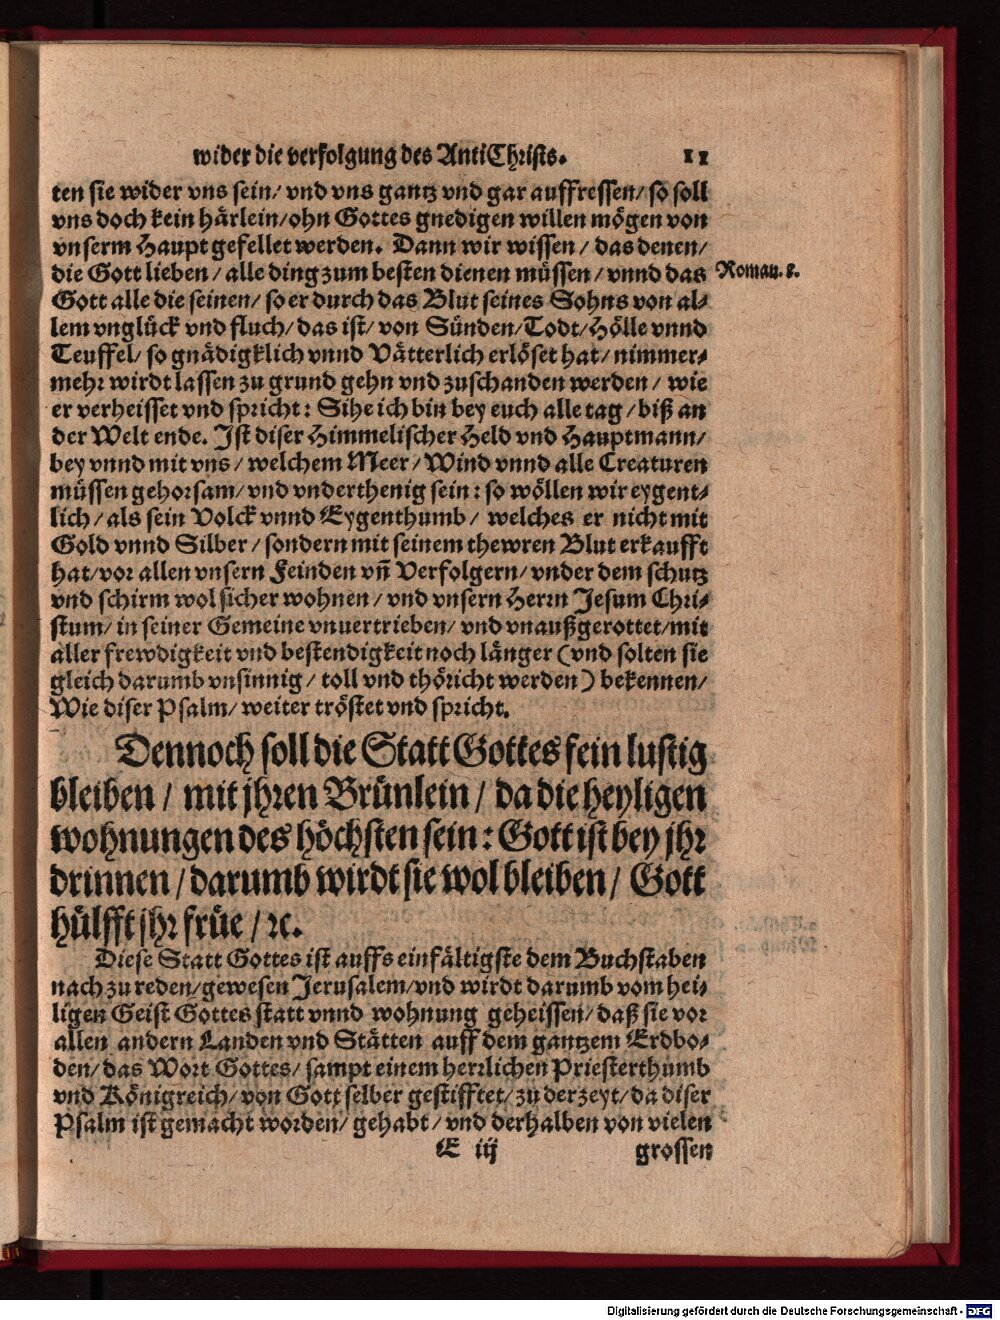 wider die verfolgung des AntiChrists. 11
ten sie wider vns sein/ vnd vns gantz vnd gar auffressen/ so soll
vns doch kein härlein/ohn Gottes gnedigen willen mögen von
vnserm Haupt gefellet werden. Dann wir wissen/ das denen/
die Gott lieben/ alle ding zum besten dienen müssen/ vnnd das
Roman. 8.
Gott alle die seinen/ so er durch das Blut seines Sohns von al-
lem vnglück vnd fluch/ das ist/ von Sünden/Todt/Hölle vnnd
Teuffel/ so gnädigklich vnnd Vätterlich erlöset hat/ nimmer-
mehr wirdt lassen zu grund gehn vnd zuschanden werden/ wie
er verheisset vnd spricht: Sihe ich bin bey euch alle tag/ biß an
der Welt ende. Ist diser Himmelischer Held vnd Hauptmann/
bey vnnd mit vns/ welchem Meer/ Wind vnnd alle Creaturen
müssen gehorsam/ vnd vnderthenig sein: so wöllen wir eygent-
lich/ als sein Volck vnnd Eygenthumb/ welches er nicht mit
Gold vnnd Silber/ sondern mit seinem thewren Blut erkaufft
hat/vor allen vnsern Feinden vñ Verfolgern/ vnder dem schutz
vnd schirm wol sicher wohnen/ vnd vnsern Herrn Jesum Chri-
stum/ in seiner Gemeine vnuertrieben/ vnd vnaußgerottet/mit
aller frewdigkeit vnd bestendigkeit noch länger (vnd solten sie
gleich darumb vnsinnig/ toll vnd thöricht werden) bekennen/
Wie diser Psalm/ weiter tröstet vnd spricht.
Dennoch soll die Statt Gottes fein lustig
bleiben/ mit jhren Brünlein/ da die heyligen
wohnungen des höchsten sein: Gott ist bey jhr
drinnen/ darumb wirdt sie wol bleiben/ Gott
hülfft jhr früe/ ꝛc.
Diese Statt Gottes ist auffs einfältigste dem Buchstaben
nach zu reden/gewesen Jerusalem/vnd wirdt darumb vom hei-
ligen Geist Gottes statt vnnd wohnung geheissen/ daß sie vor
allen andern Landen vnd Stätten auff dem gantzem Erdbo-
den/ das Wort Gottes/ sampt einem herrlichen Priesterthumb
vnd Königreich/ von Gott selber gestifftet/ zu der zeyt/ da diser
Psalm ist gemacht worden/ gehabt/ vnd derhalben von vielen
E iij grossen
Digitalisierung gefördert durch die Deutsche Forschungsgemeinschaft - DFG